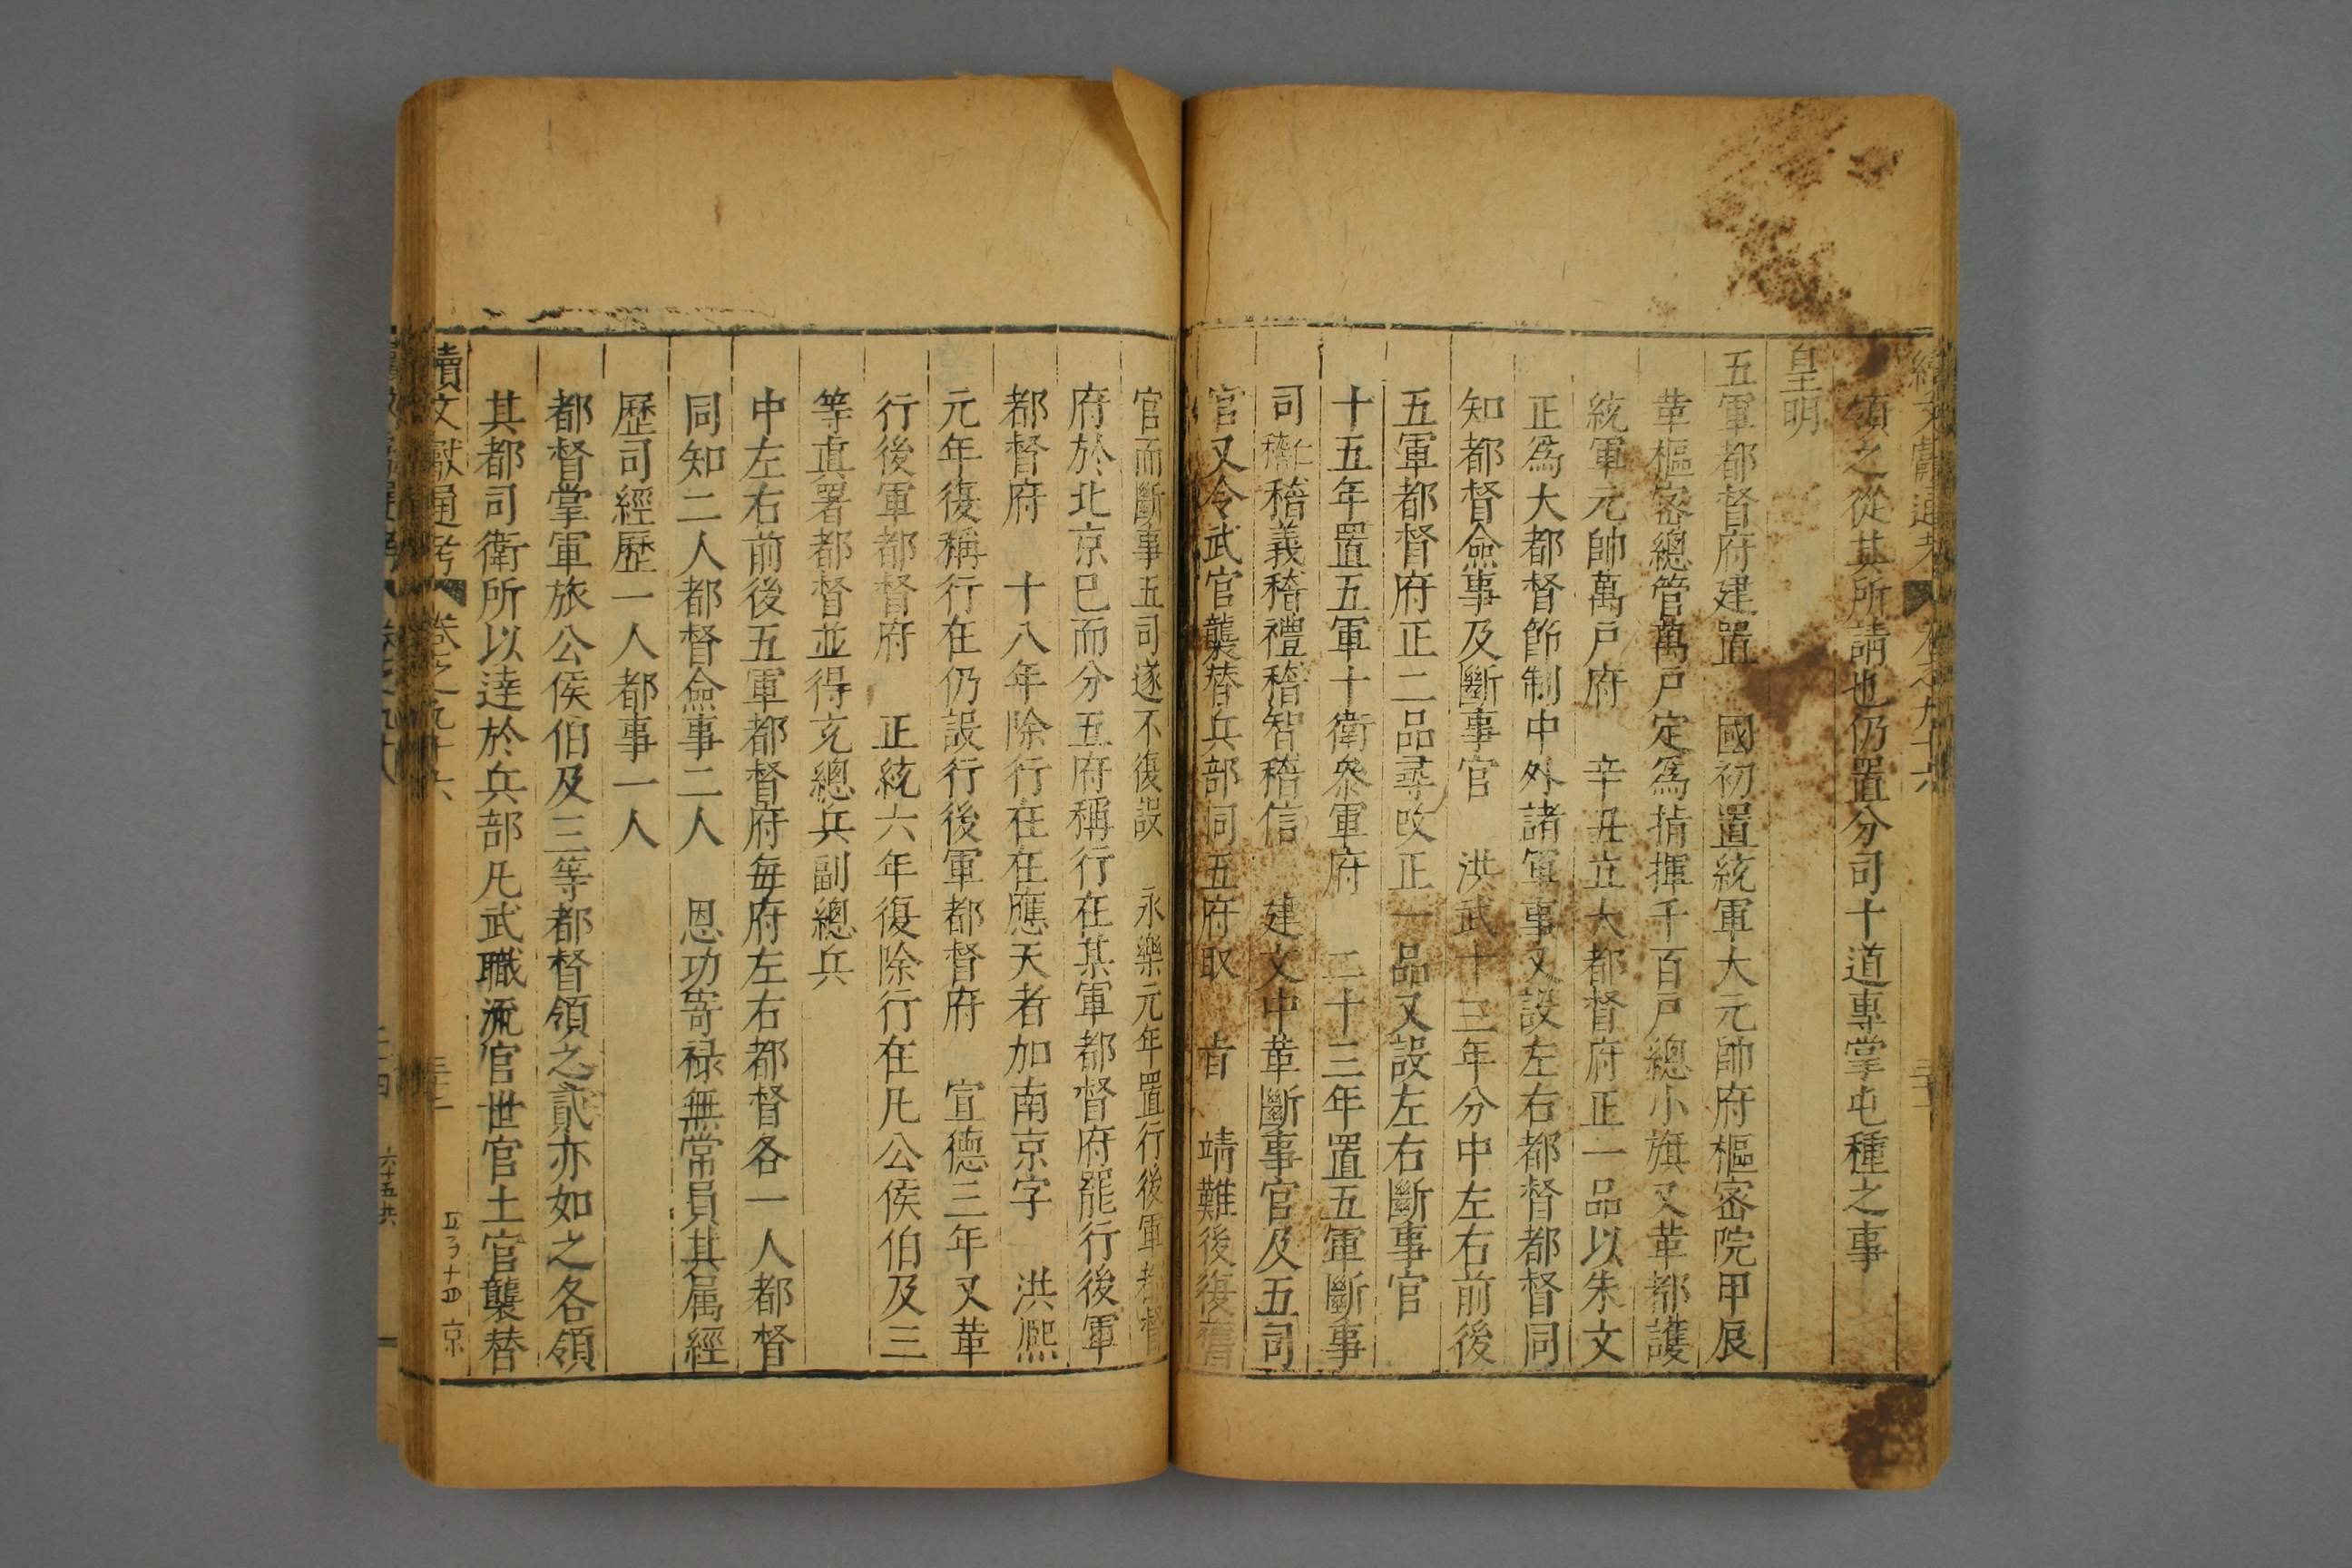 續文獻通考 卷之九十六
領之從其所請也仍置分司十道專掌屯種之事
皇明
五軍都督府建置 國初置統軍大元帥府樞密院甲辰
革樞密總管萬戸定爲指揮千百戸總小旗又革都護
統軍元帥萬戸府 辛丑立大都督府正一品以朱文
正爲大都督節制中外諸軍事又設左右都督都督同
知都督僉事及斷事官 洪武十三年分中左右前後
五軍都督府正二品尋改正一品又設左右斷事官
十五年置五軍十衛叅軍府 二十三年置五軍斷事
司 稽義稽禮稽智稽信 建文中革斷事官及五司
官又令武官襲替兵部同五府取 旨 靖難後復舊
官而斷事五司遂不復設 永樂元年置行後軍都督
府於北京已而分五府稱行在某軍都督府罷行後軍
都督府 十八年除行在在應天者加南京字 洪熈
元年復稱行在仍設行後軍都督府 宣德三年又革
行後軍都督府 正統六年復除行在凡公侯伯及三
等真署都督並得充總兵副總兵
中左右前後五軍都督府每府左右都督各一人都督
同知二人都督僉事二人 恩功寄禄無常員其属經
歷司經歷一人都事一人
都督掌軍旅公侯伯及三等都督領之貳亦如之各領
其都司衛所以逹於兵部凡武職流官世官土官襲替
續文獻通考 卷之九十六